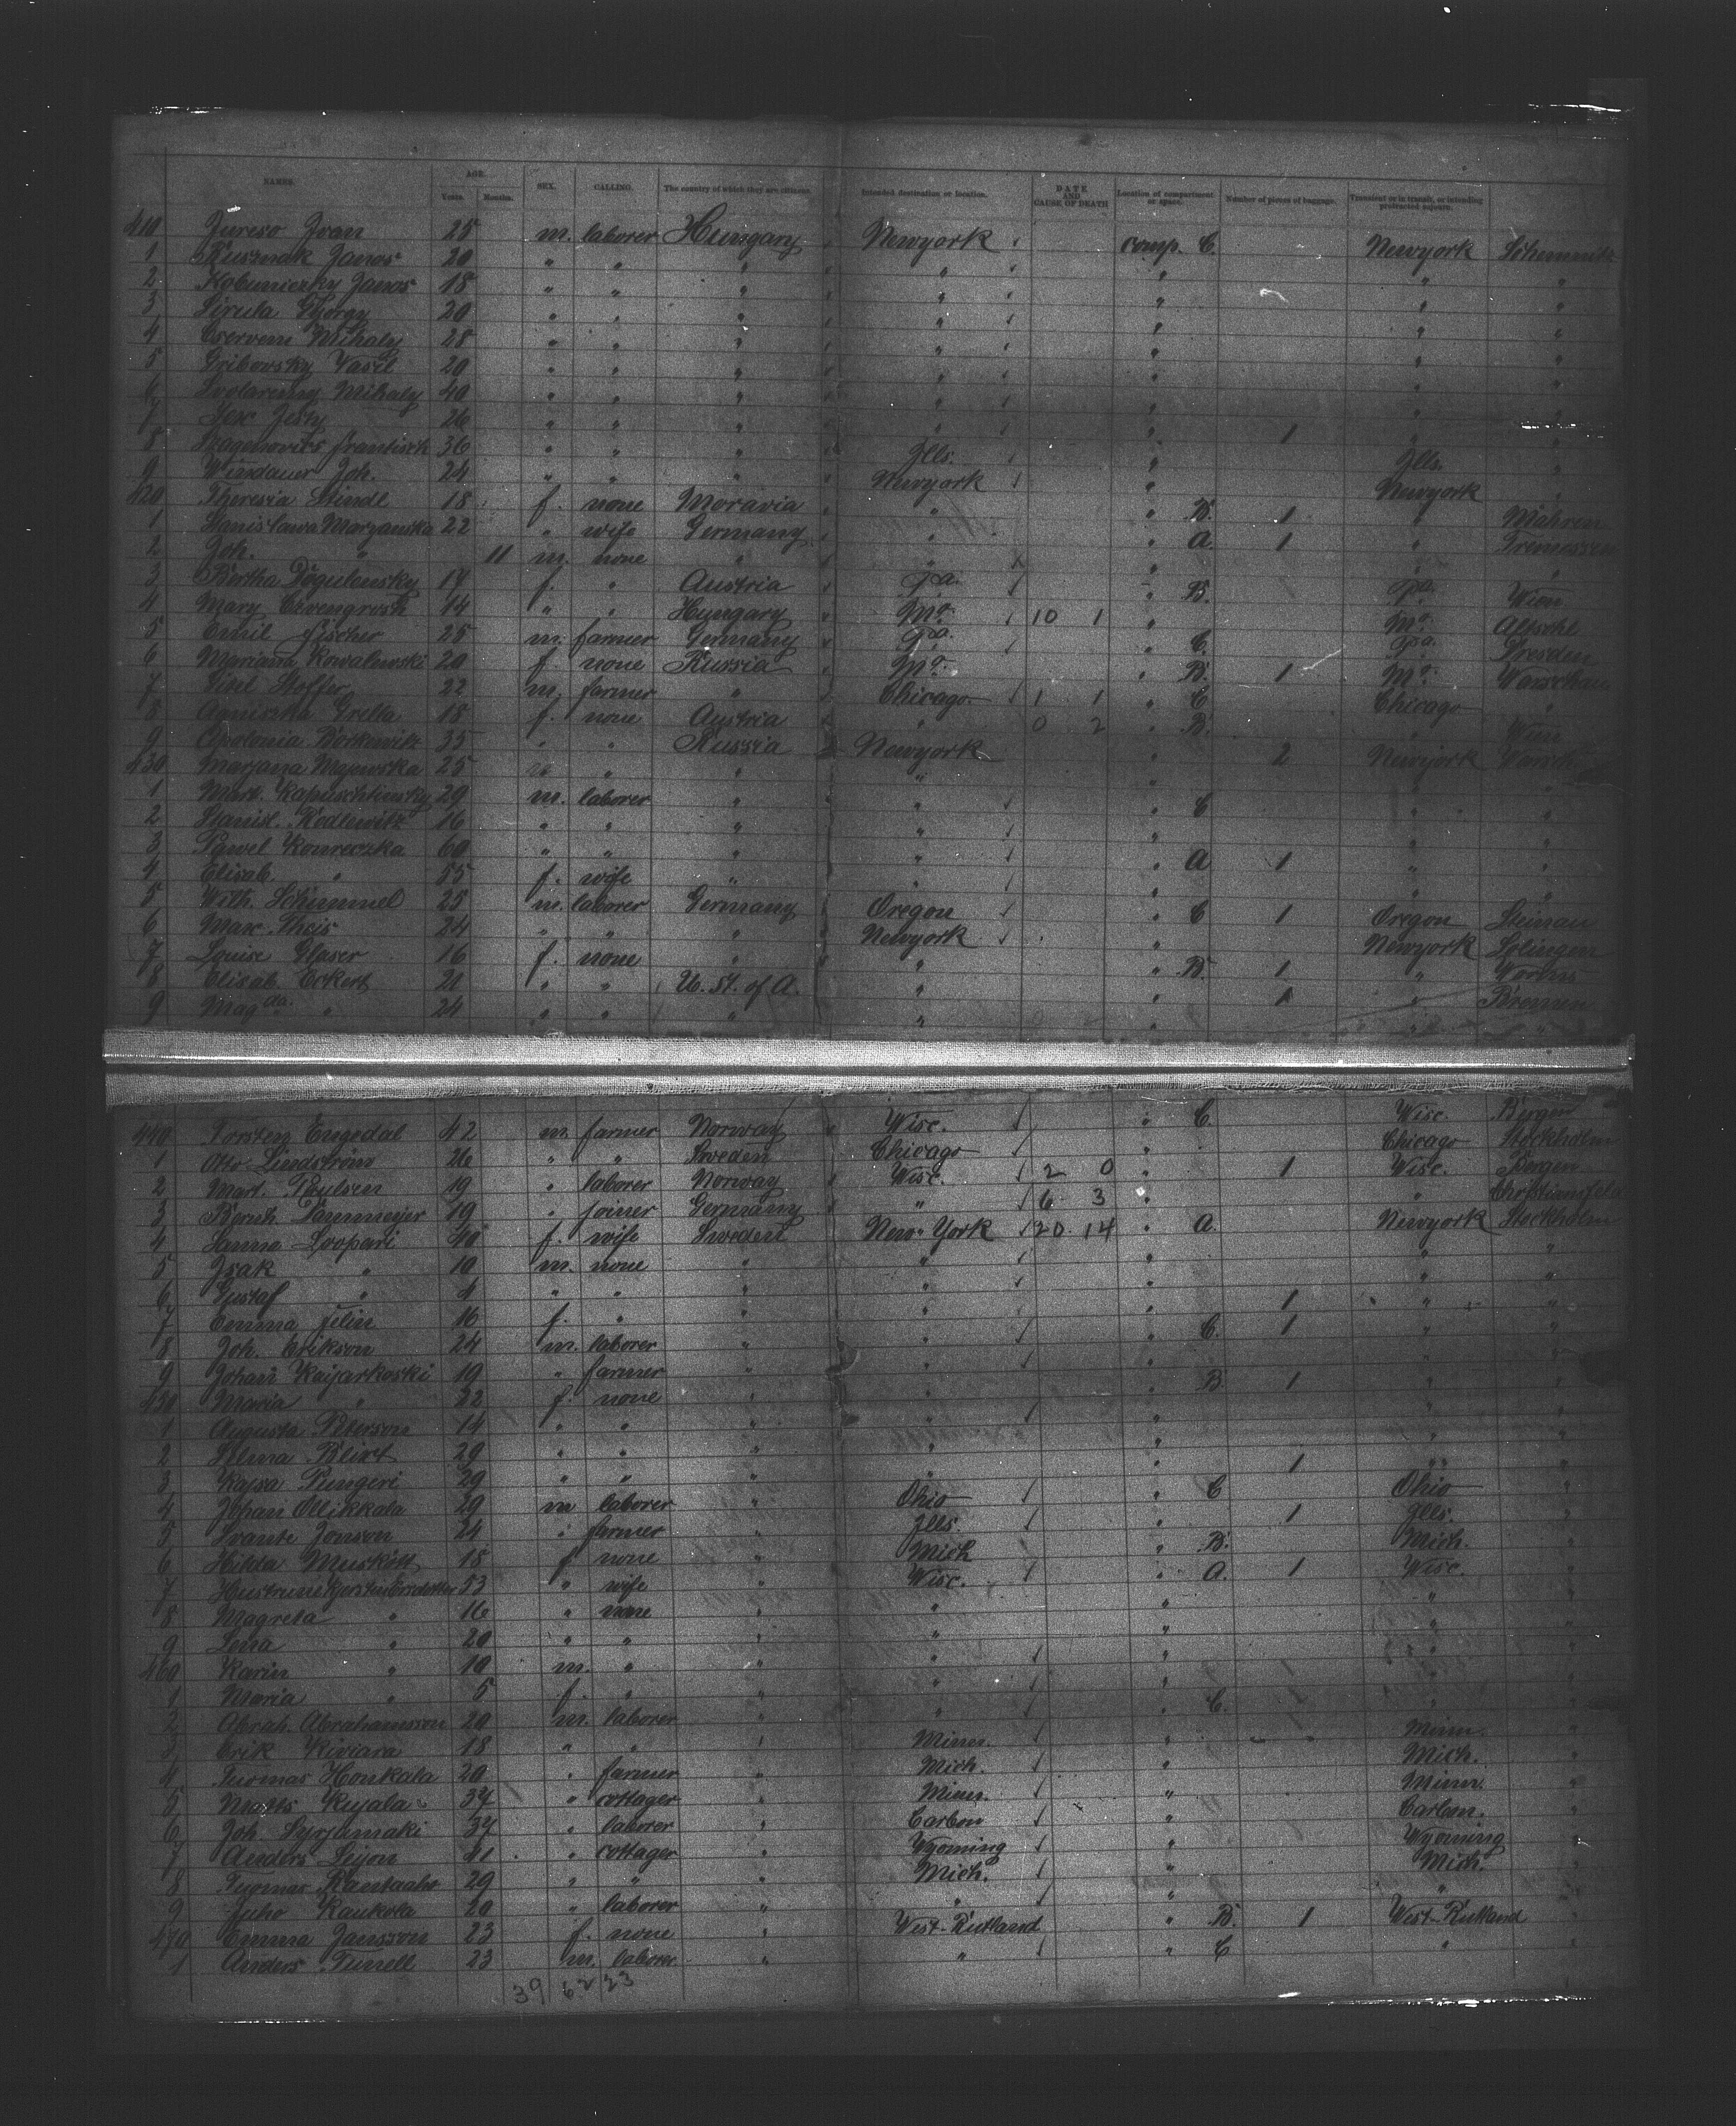 NAMES. AGE. Years. Months. SEX. CALLING. The country of which they are citizens. Intended destination or location. DATE AND CAUSE OF DEATH Location of compartment or space. Number of pieces of baggage. Transient or in transit, or intending protracted sojourn.
410 Jureso Ivan 25 m. laborer Hungary Newyork comp. C. Newyork
1 Rusznak Janos 20 " " " " " " "
2 Janos 18 " " " " " " "
3 György 20 " " " " " " "
4 Mihaly 28 " " " " " " "
5 Gribowsky Vasil 20 " " " " " " "
6 Mihaly 40 " " " " " " "
7 26 " " " " " 1 " "
8 frantisek 36 " " " Ills. " Ills. "
9 Windauer Joh. 24 " " " Newyork " Newyork "
420 Theresia Lindl 18 f. none Moravia " " B. 1 " Mähren
1 Stanislawa Maryanska 22 " wife Germany " " A. 1 "
2 Joh. " 11 m. none " " " " "
3 Bertha 17 f. " Austria Pa. " B. Pa. Wien
4 Mary 14 " " Hungary Mo. 10 1 " Mo. Altsohl
5 Emil Fischer 25 m. farmer Germany Pa. " C. Pa. Dresden
6 Mariana Kowalewski 20 f. none Russia Mo. " B. 1 Mo. Warschau
7 Stoffer 22 m. farmer " Chicago 1 1 " C Chicago "
8 Agniszka Grella 18 f. none Austria " 0 2 " B. " Wien
9 Apolonia Borkewitz 35 " " Russia Newyork 2 Newyork Warsch.
430 Marjana Majewska 25 " " " " " " "
1 Mart. Kapuschtinsky 29 m. laborer " " " C " "
2 Stanisl. Kodlewitz 16 " " " " " " "
3 Pawel Konreczka 60 " " " " " A 1 " "
4 Elisab. " 55 f. wife " " " " "
5 Wilh. Schimmel 25 m. laborer Germany Oregon " C 1 Oregon Steinau
6 Max Theis 24 " " " Newyork " Newyork Solingen
7 Louise Glaser 16 f. none " " " B. 1 " Worms
8 Elisab. Eckert 21 " " U. St. of A. " " 1 " Bremen
9 Magda. " 24 " " " " " " "
440 Torsten Engedal 42 m. farmer Norway Wisc. " C. Wisc. Bergen
1 Otto Lindström 26 " " Sweden Chicago " Chicago Stockholm
2 Mart. Paulsen 19 " laborer Norway Wisc. 2 0 " 1 Wisc. Bergen
3 19 " joiner Germany " 6 3 " " Christiansfeld
4 Sanna Loopari 40 f. wife Sweden New-York 20 14 " A. Newyork Stockholm
5 Isak " 10 m. none " " " " "
6 Gustaf " 4 " " " " " 1 " "
7 Emma Felin 16 f. " " " " 1 " "
8 Joh. Erikson 24 m. laborer " " " C. " "
9 Johan Kaijarkoski 19 " farmer " " " " "
450 Maria " 22 f. none " " " B. 1 " "
1 Augusta Peterson 14 " " " " " " "
2 Selma Blixt 29 " " " " " " "
3 Kajsa Pungeri 29 " " " " " 1 " "
4 Johan Ollikkala 29 m laborer " Ohio " C Ohio "
5 Svante Jonson 24 " farmer " Ills. " 1 Ills. "
6 Hilda 18 f none " Mich " B. Mich. "
7 Hustrun 53 " wife " Wisc. " A. 1 Wisc. "
8 Magreta " 16 " none " " " " "
9 Lena " 20 " " " " " " "
460 Karin " 10 m. " " " " " "
1 Maria " 5 f. " " " " " "
2 Abrah. Abrahamsson 20 m. laborer " " " C. " "
3 Erik Kiviara 18 " " " Minn. " Minn. "
4 Tuomas Honkala 20 " farmer " Mich. " Mich. "
5 Matts Kujala 37 " cottager " Minn. " Minn. "
6 Joh. Syrjamaki 37 " laborer " Carbon " Carbon. "
7 Anders Leijon 41 " cottager " Wyoming " Wyoming "
8 Tuomas 29 " " " Mich. " Mich. "
9 Juho Kaukola 20 " laborer " " " " "
470 Emma Jansson 23 f. none " West-Rutland " B. 1 West-Rutland "
1 Anders Turrell 23 m. laborer " " " C " "
39 62 23